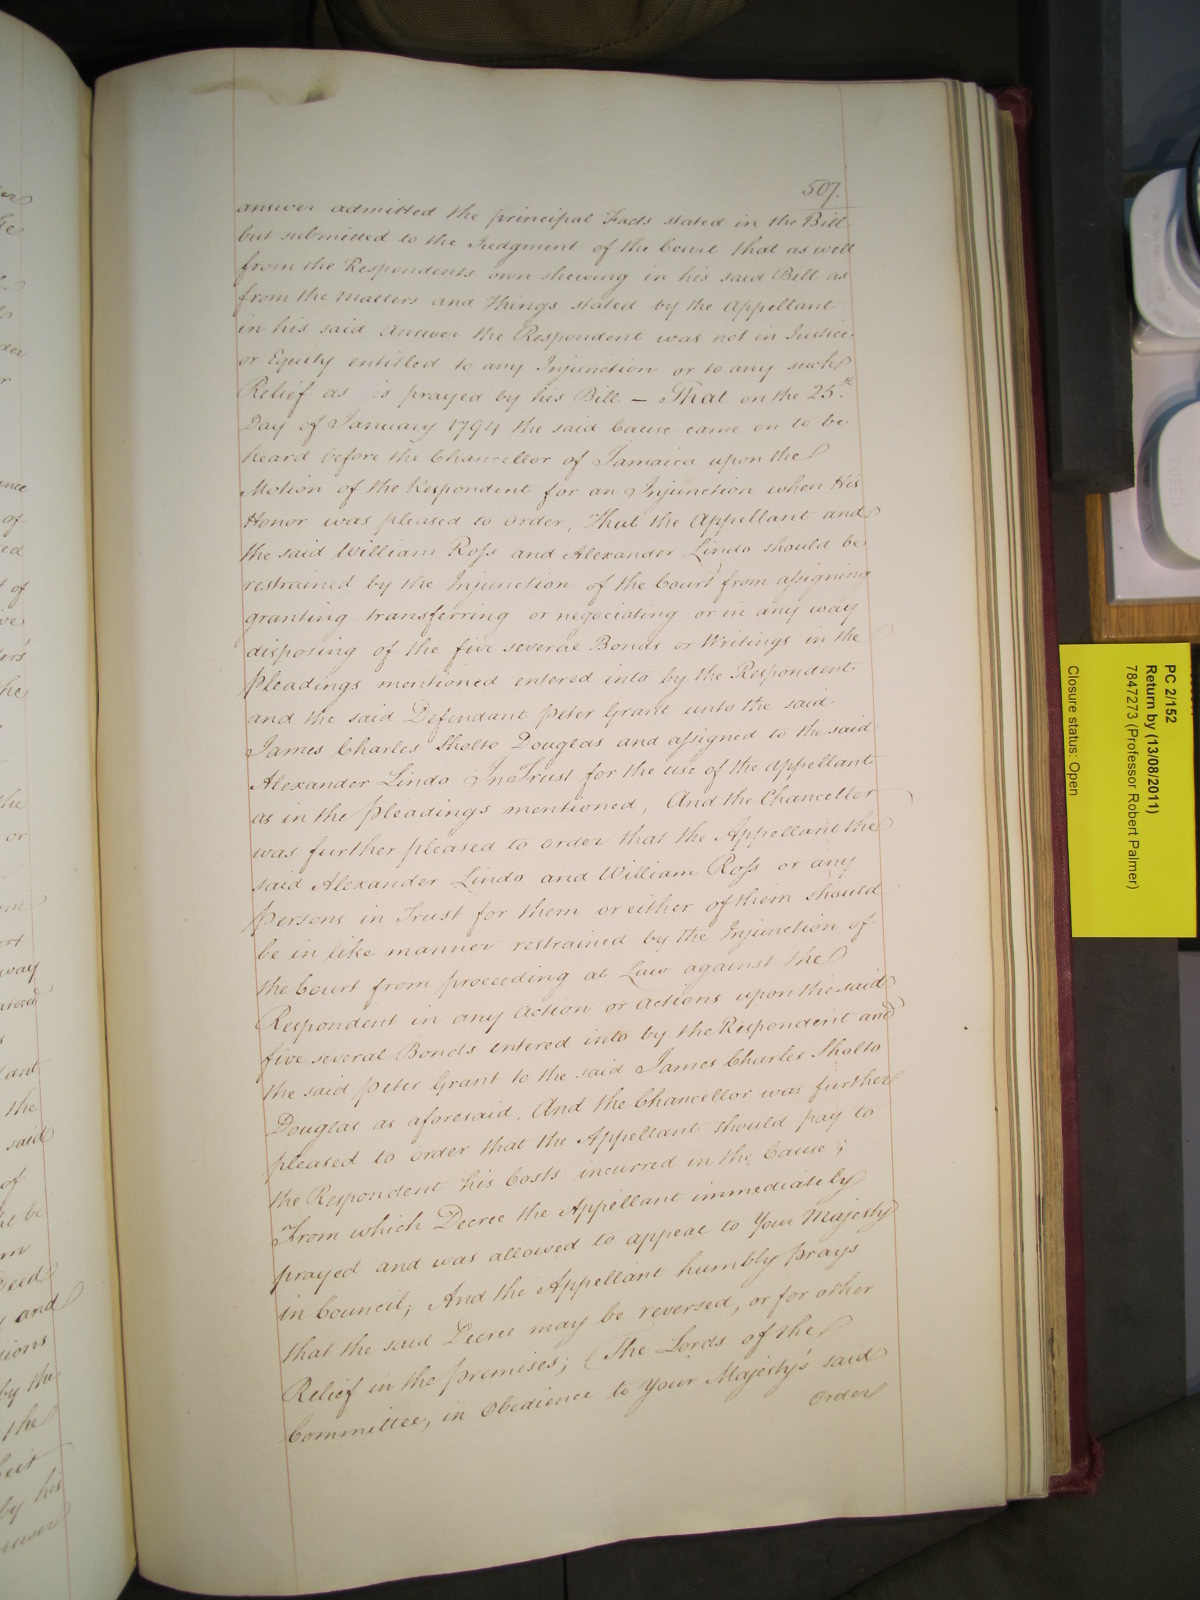 507.
answer admitted the principal Facts stated in the Bill
but submitted to the Judgment of the Court that as well
from the Respondents own shewing in his said Bill as
from the matters and things stated by the Appellant
in his said answer the Respondent was not in Justice
or Equity entitled to any Injunction or to any such
Relief as is prayed by his Bill — That on the 25.th
Day of January 1794 the said Cause came on to be
heard before the Chancellor of Jamaica upon the
Motion of the Respondent for an Injunction when His
Honor was pleased to order, That the Appellant and
the said William Ross and Alexander Lindo should be
restrained by the Injunction of the Court from assigning
granting transferring or negociating or in any way
disposing of the five several Bonds or Writings in the
Pleadings mentioned entered into by the Respondent
and the said Defendant Peter Grant unto the said
James Charles Sholto Douglas and assigned to the said
Alexander Lindo In Trust for the use of the appellant
as in the Pleadings mentioned, And the Chancellor
was further pleased to order that the Appellant the
said Alexander Lindo and William Ross or any
Persons in Trust for them or either of them should
be in like manner restrained by the Injunction of
the Court from proceeding at Law against the
Respondent in any action or actions upon the said
five several Bonds entered into by the Respondent and
the said Peter Grant to the said James Charles Sholto
Douglas as aforesaid, And the Chancellor was further
pleased to order that the Appellant should pay to
the Respondent his Costs incurred in the Cause;
From which Decree the Appellant immediately
prayed and was allowed to appeal to Your Majesty
in Council; And the Appellant humbly prays
that the said Decree may be reversed, or for other
Relief in the premises; The Lords of the
Committee, in obedience to Your Majesty's said
order
PC 2/152
Return by (13/08/2011)
7847273 (Professor Robert Palmer)
Closure status: Open